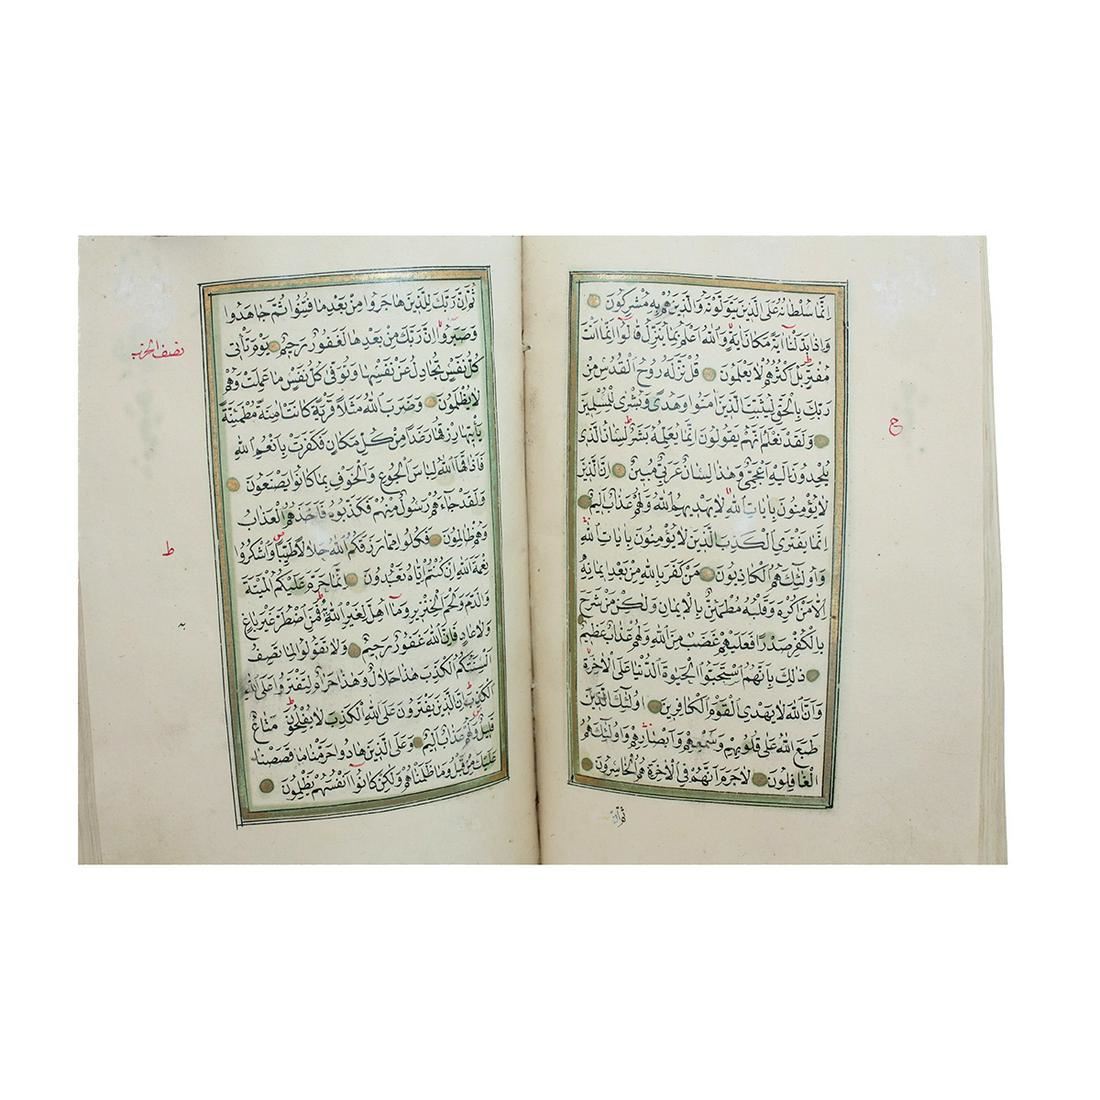 اِنَّمَا سُلْطَانُهُ عَلَى الَّذِينَ يَتَوَلَّوْنَهُ وَالَّذِينَ هُمْ بِهِ مُشْرِكُونَ
وَاِذَا بَدَّلْنَا اٰيَةً مَكَانَ اٰيَةٍ وَاللّٰهُ اَعْلَمُ بِمَا يُنَزِّلُ قَالُوا اِنَّمَا اَنْتَ
مُفْتَرٍ بَلْ اَكْثَرُهُمْ لَا يَعْلَمُونَ قُلْ نَزَّلَهُ رُوحُ الْقُدُسِ مِنْ
رَبِّكَ بِالْحَقِّ لِيُثَبِّتَ الَّذِينَ اٰمَنُوا وَهُدًى وَبُشْرٰى لِلْمُسْلِمِينَ
وَلَقَدْ نَعْلَمُ اَنَّهُمْ يَقُولُونَ اِنَّمَا يُعَلِّمُهُ بَشَرٌ لِسَانُ الَّذِي
يُلْحِدُونَ اِلَيْهِ اَعْجَمِيٌّ وَهٰذَا لِسَانٌ عَرَبِيٌّ مُبِينٌ اِنَّ الَّذِينَ
لَا يُؤْمِنُونَ بِاٰيَاتِ اللّٰهِ لَا يَهْدِيهِمُ اللّٰهُ وَلَهُمْ عَذَابٌ اَلِيمٌ
اِنَّمَا يَفْتَرِي الْكَذِبَ الَّذِينَ لَا يُؤْمِنُونَ بِاٰيَاتِ اللّٰهِ
وَاُولٰئِكَ هُمُ الْكَاذِبُونَ مَنْ كَفَرَ بِاللّٰهِ مِنْ بَعْدِ اِيمَانِهِ
اِلَّا مَنْ اُكْرِهَ وَقَلْبُهُ مُطْمَئِنٌّ بِالْاِيمَانِ وَلٰكِنْ مَنْ شَرَحَ
بِالْكُفْرِ صَدْرًا فَعَلَيْهِمْ غَضَبٌ مِنَ اللّٰهِ وَلَهُمْ عَذَابٌ عَظِيمٌ
ذٰلِكَ بِاَنَّهُمُ اسْتَحَبُّوا الْحَيٰوةَ الدُّنْيَا عَلَى الْاٰخِرَةِ
وَاَنَّ اللّٰهَ لَا يَهْدِي الْقَوْمَ الْكَافِرِينَ اُولٰئِكَ الَّذِينَ
طَبَعَ اللّٰهُ عَلٰى قُلُوبِهِمْ وَسَمْعِهِمْ وَاَبْصَارِهِمْ وَاُولٰئِكَ هُمُ
الْغَافِلُونَ لَا جَرَمَ اَنَّهُمْ فِي الْاٰخِرَةِ هُمُ الْخَاسِرُونَ
ثُمَّ اِنَّ
ع
ثُمَّ اِنَّ رَبَّكَ لِلَّذِينَ هَاجَرُوا مِنْ بَعْدِ مَا فُتِنُوا ثُمَّ جَاهَدُوا
وَصَبَرُوا اِنَّ رَبَّكَ مِنْ بَعْدِهَا لَغَفُورٌ رَحِيمٌ يَوْمَ تَأْتِي
كُلُّ نَفْسٍ تُجَادِلُ عَنْ نَفْسِهَا وَتُوَفّٰى كُلُّ نَفْسٍ مَا عَمِلَتْ وَهُمْ
لَا يُظْلَمُونَ وَضَرَبَ اللّٰهُ مَثَلًا قَرْيَةً كَانَتْ اٰمِنَةً مُطْمَئِنَّةً
يَأْتِيهَا رِزْقُهَا رَغَدًا مِنْ كُلِّ مَكَانٍ فَكَفَرَتْ بِاَنْعُمِ اللّٰهِ
فَاَذَاقَهَا اللّٰهُ لِبَاسَ الْجُوعِ وَالْخَوْفِ بِمَا كَانُوا يَصْنَعُونَ
وَلَقَدْ جَاءَهُمْ رَسُولٌ مِنْهُمْ فَكَذَّبُوهُ فَاَخَذَهُمُ الْعَذَابُ
وَهُمْ ظَالِمُونَ فَكُلُوا مِمَّا رَزَقَكُمُ اللّٰهُ حَلَالًا طَيِّبًا وَاشْكُرُوا
نِعْمَةَ اللّٰهِ اِنْ كُنْتُمْ اِيَّاهُ تَعْبُدُونَ اِنَّمَا حَرَّمَ عَلَيْكُمُ الْمَيْتَةَ
وَالدَّمَ وَلَحْمَ الْخِنْزِيرِ وَمَا اُهِلَّ لِغَيْرِ اللّٰهِ بِهِ فَمَنِ اضْطُرَّ غَيْرَ بَاغٍ
وَلَا عَادٍ فَاِنَّ اللّٰهَ غَفُورٌ رَحِيمٌ وَلَا تَقُولُوا لِمَا تَصِفُ
اَلْسِنَتُكُمُ الْكَذِبَ هٰذَا حَلَالٌ وَهٰذَا حَرَامٌ لِتَفْتَرُوا عَلَى اللّٰهِ
الْكَذِبَ اِنَّ الَّذِينَ يَفْتَرُونَ عَلَى اللّٰهِ الْكَذِبَ لَا يُفْلِحُونَ مَتَاعٌ
قَلِيلٌ وَلَهُمْ عَذَابٌ اَلِيمٌ وَعَلَى الَّذِينَ هَادُوا حَرَّمْنَا مَا قَصَصْنَا
عَلَيْكَ مِنْ قَبْلُ وَمَا ظَلَمْنَاهُمْ وَلٰكِنْ كَانُوا اَنْفُسَهُمْ يَظْلِمُونَ
نصف الحزب
ط